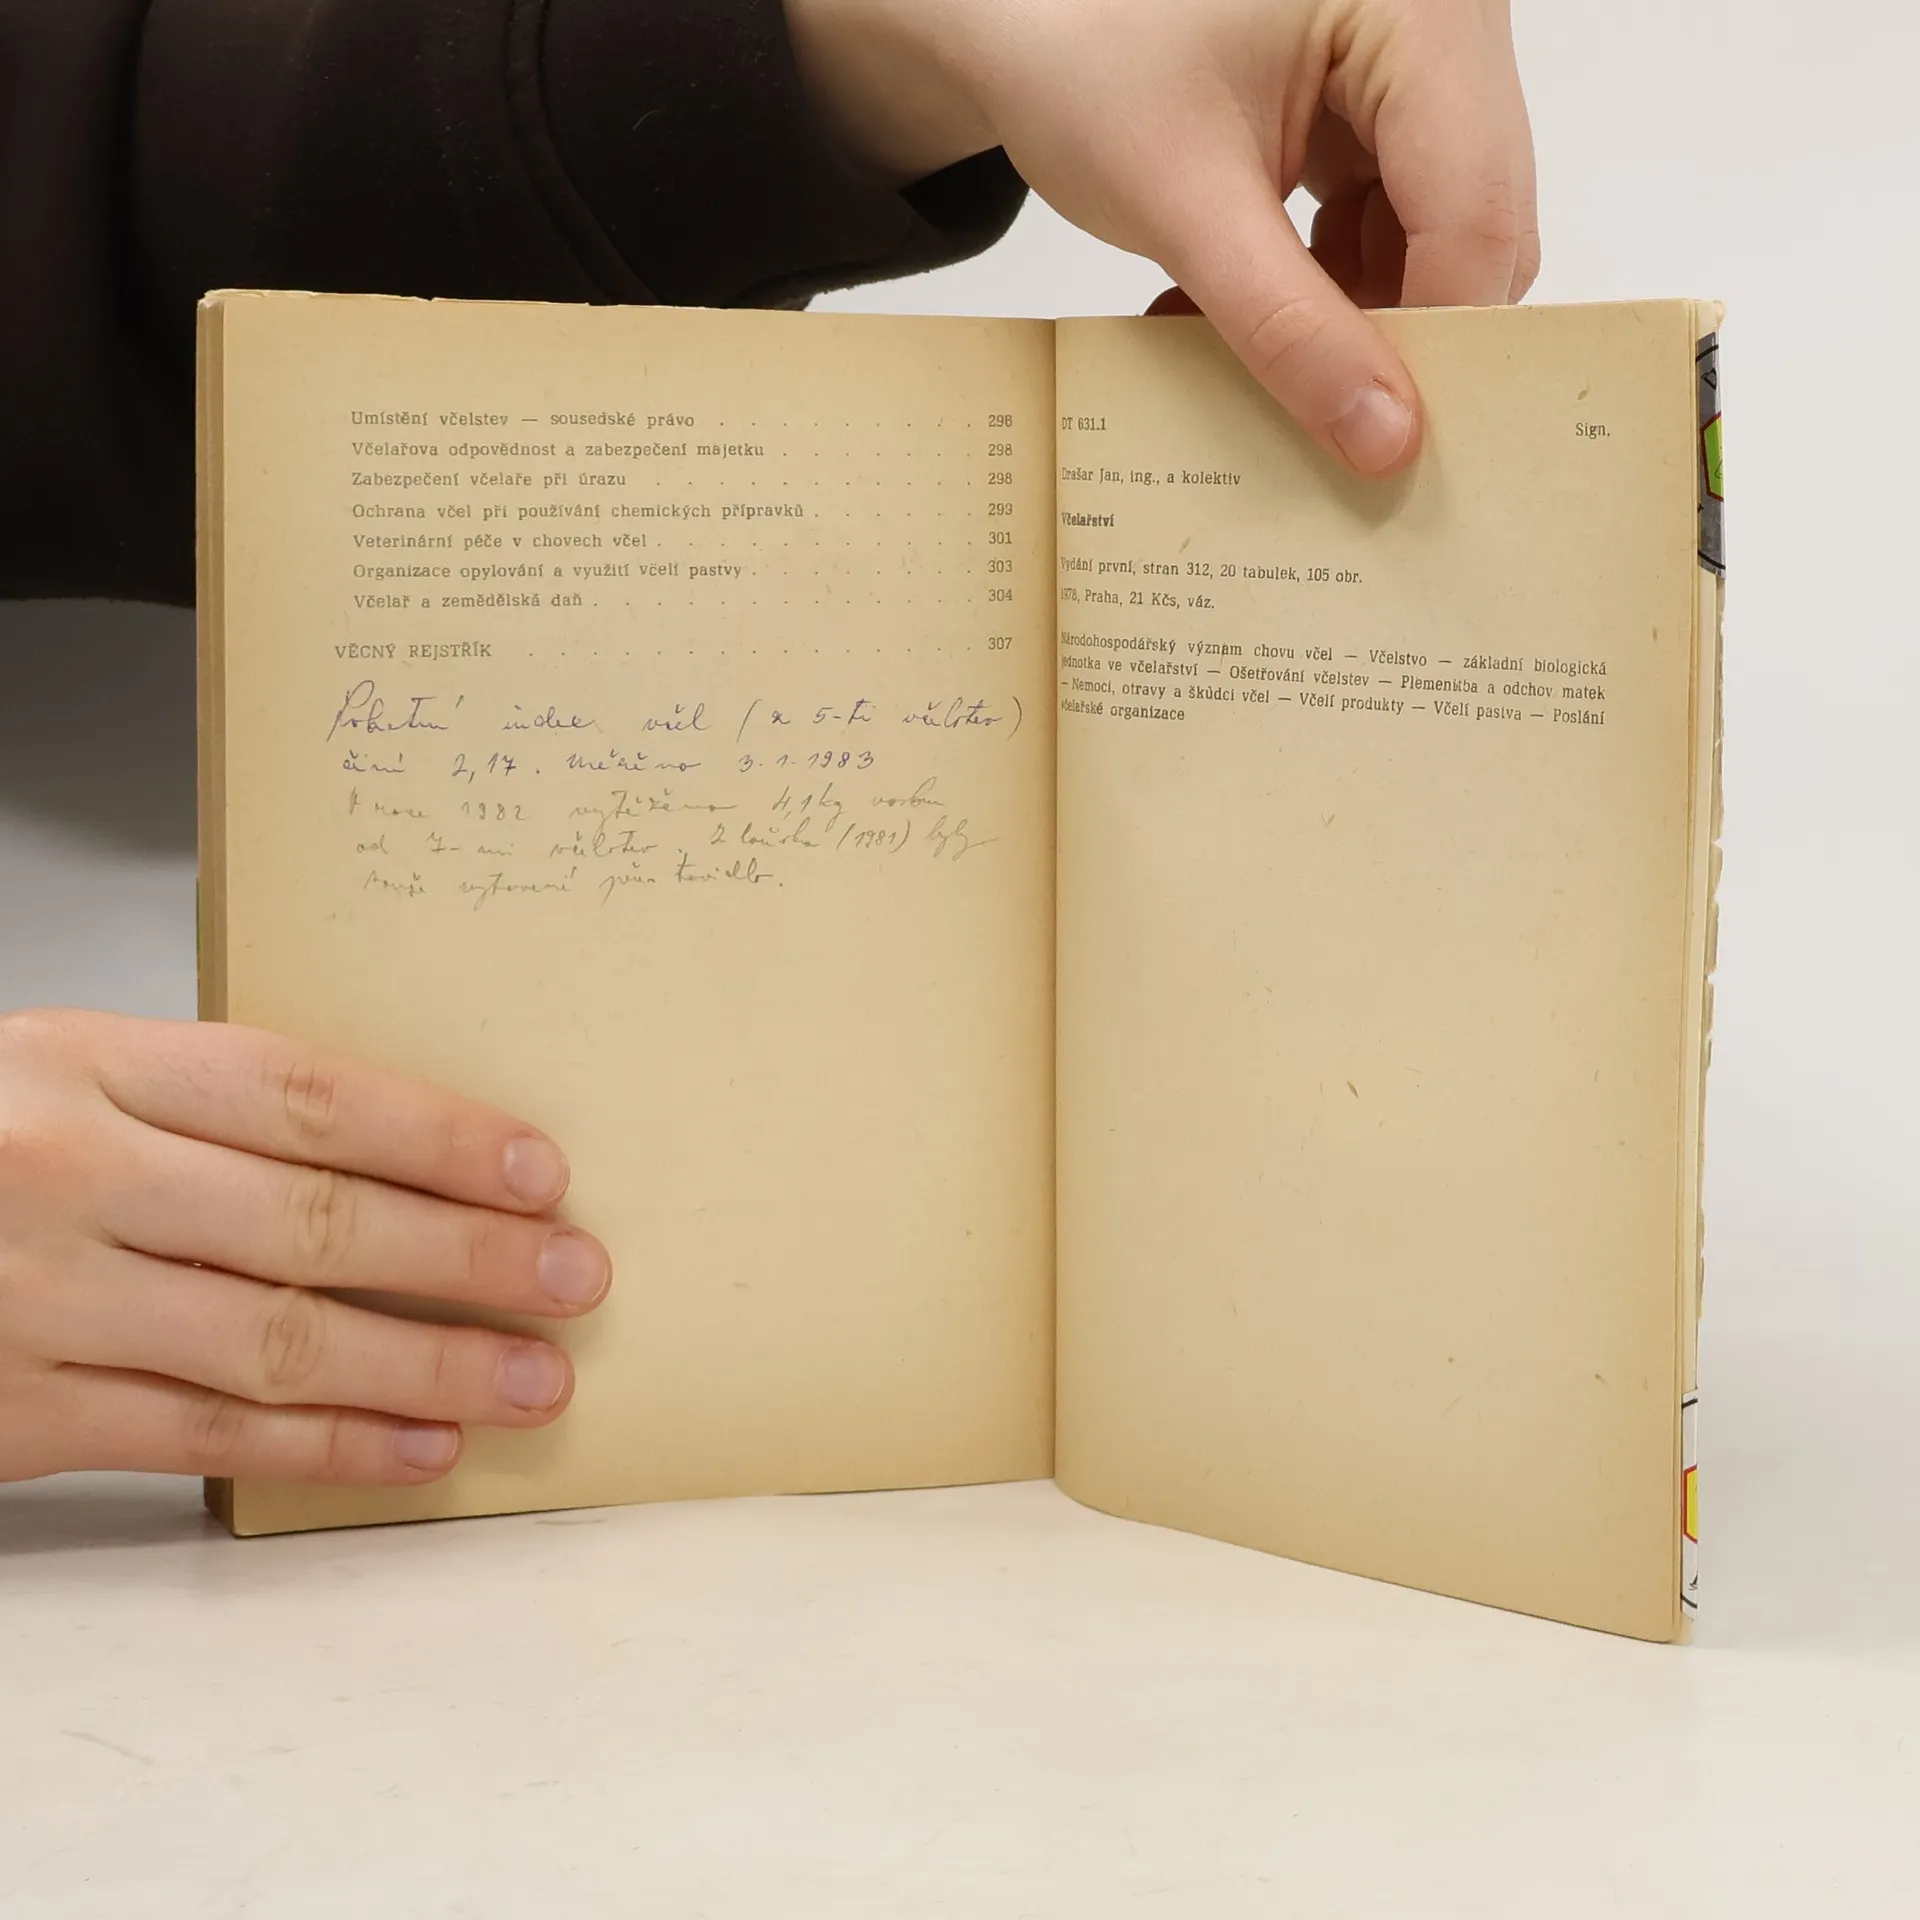 Umístění včelstev — sousedské právo . . . . . . . . . 296
Včelařova odpovědnost a zabezpečení majetku . . . . . . . 298
Zabezpečení včelaře při úrazu . . . . . . . . . . . 298
Ochrana včel při používání chemických přípravků . . . . . . 299
Veterinární péče v chovech včel . . . . . . . . . . . 301
Organizace opylování a využití včelí pastvy . . . . . . . . 303
Včelař a zemědělská daň . . . . . . . . . . . . . 304
VĚCNÝ REJSTŘÍK . . . . . . . . . . . . . . . 307
index včel (z 5-ti včelstev)
činí 2,17. Měřěno 3.1.1983
V roce 1982 vytěženo 4,1kg vosku
od 7-mi včelstev. Z (1981) byly
souše vytavené přes tavidlo.
DT 631.1
Sign.
Drašar Jan, ing., a kolektiv
Včelařství
Vydání první, stran 312, 20 tabulek, 105 obr.
1978, Praha, 21 Kčs, váz.
Národohospodářský význam chovu včel — Včelstvo — základní biologická
jednotka ve včelařství — Ošetřování včelstev — Plemenitba a odchov matek
— Nemoci, otravy a škůdci včel — Včelí produkty — Včelí pastva — Poslání
včelařské organizace